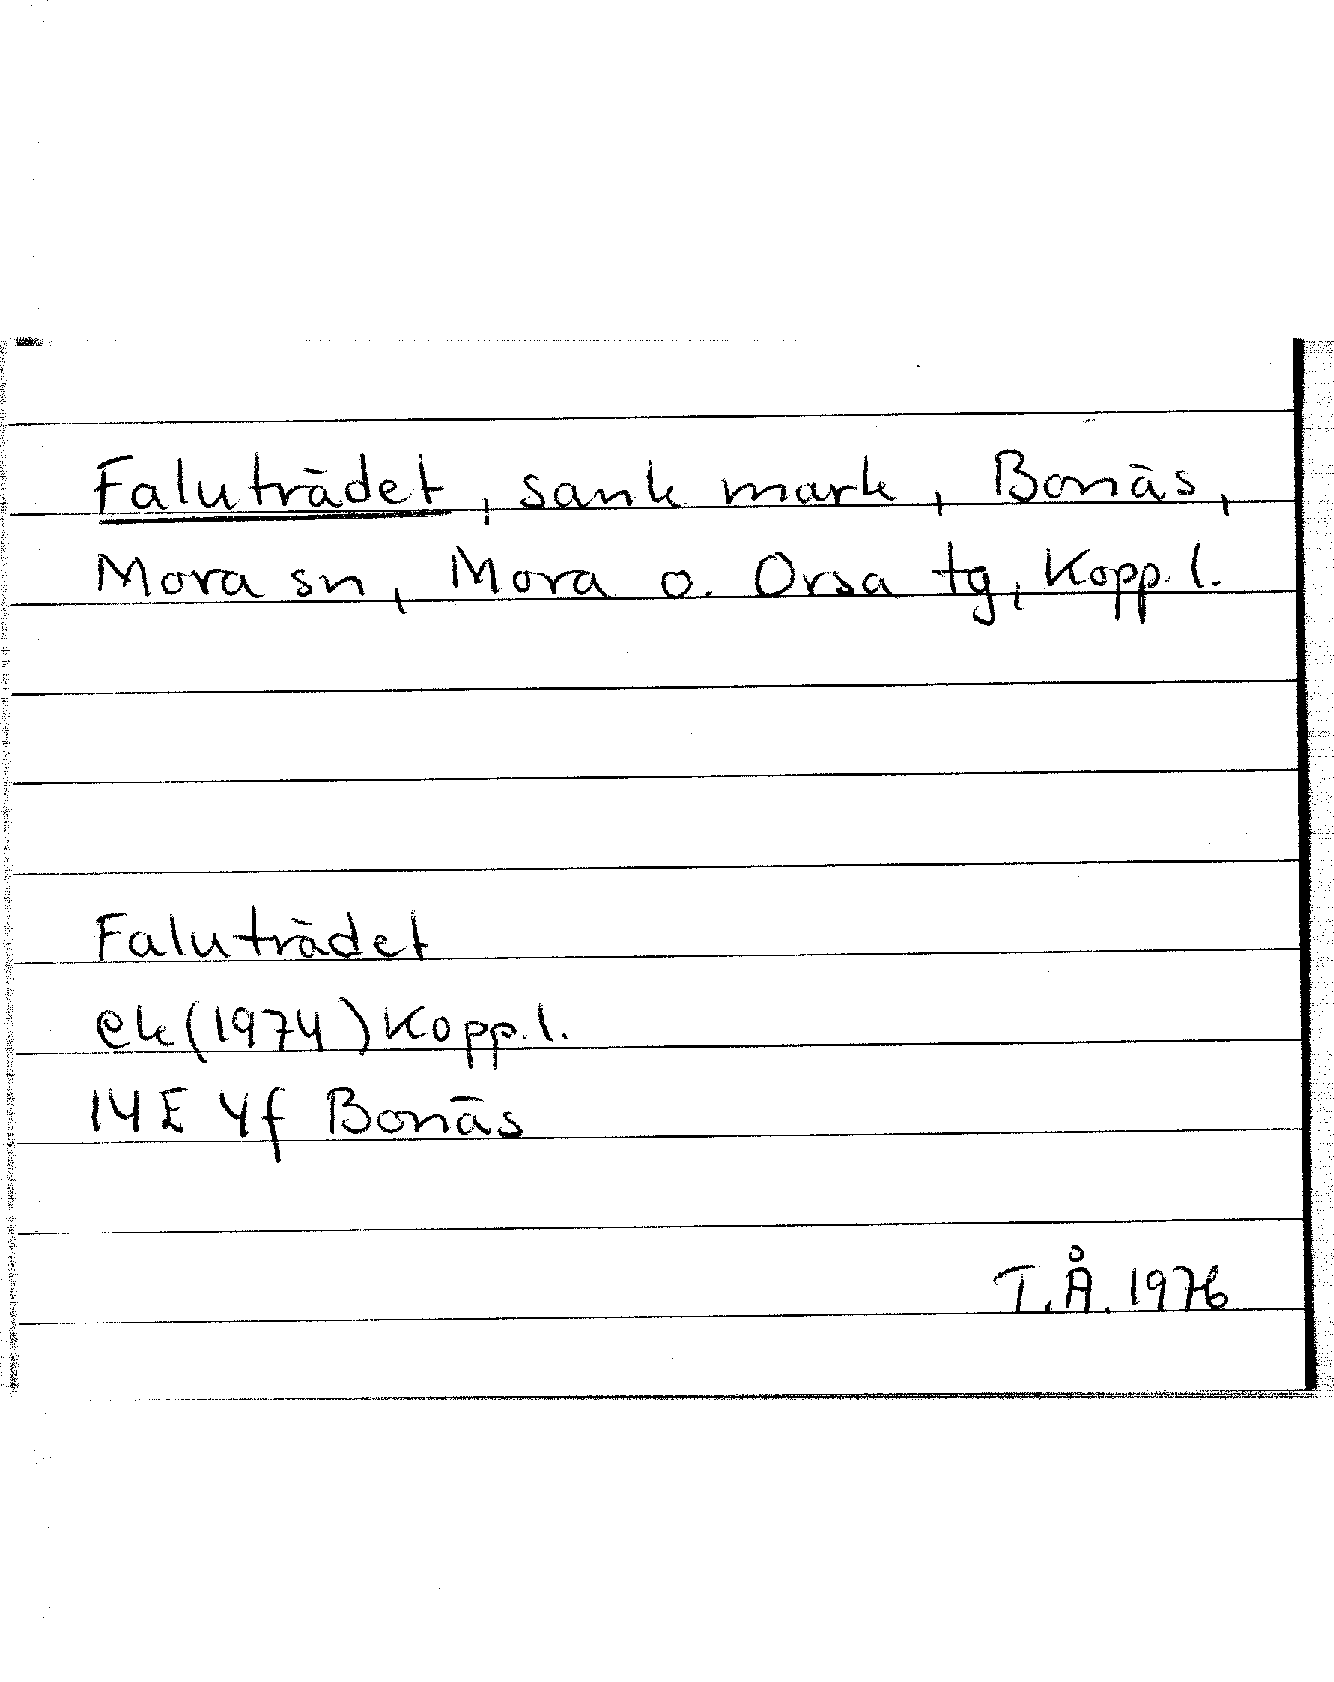 Faluträdet, sank mark, Bonäs,
Mora sn, Mora o. Orsa tg, Kopp. l.
Faluträdet
ek (1974) Kopp. l.
14E 4f Bonäs
T.Å. 1976